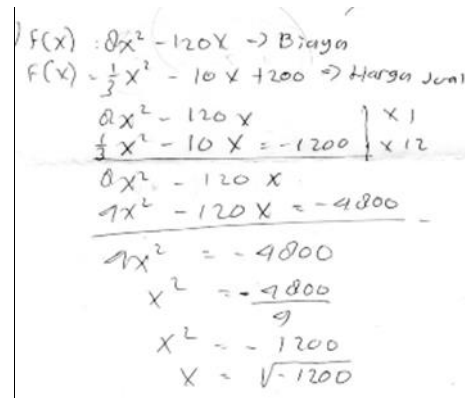 F(x) : 8x² - 120x -> Biaya
F(x) = 1/3 x² - 10x + 200 => Harga Jual
8x² - 120x | x 1
1/3 x² - 10x = -1200 | x 12
8x² - 120x
4x² - 120x = -4800 -
4x² = -4800
x² = -4800/4
x² = -1200
x = √-1200